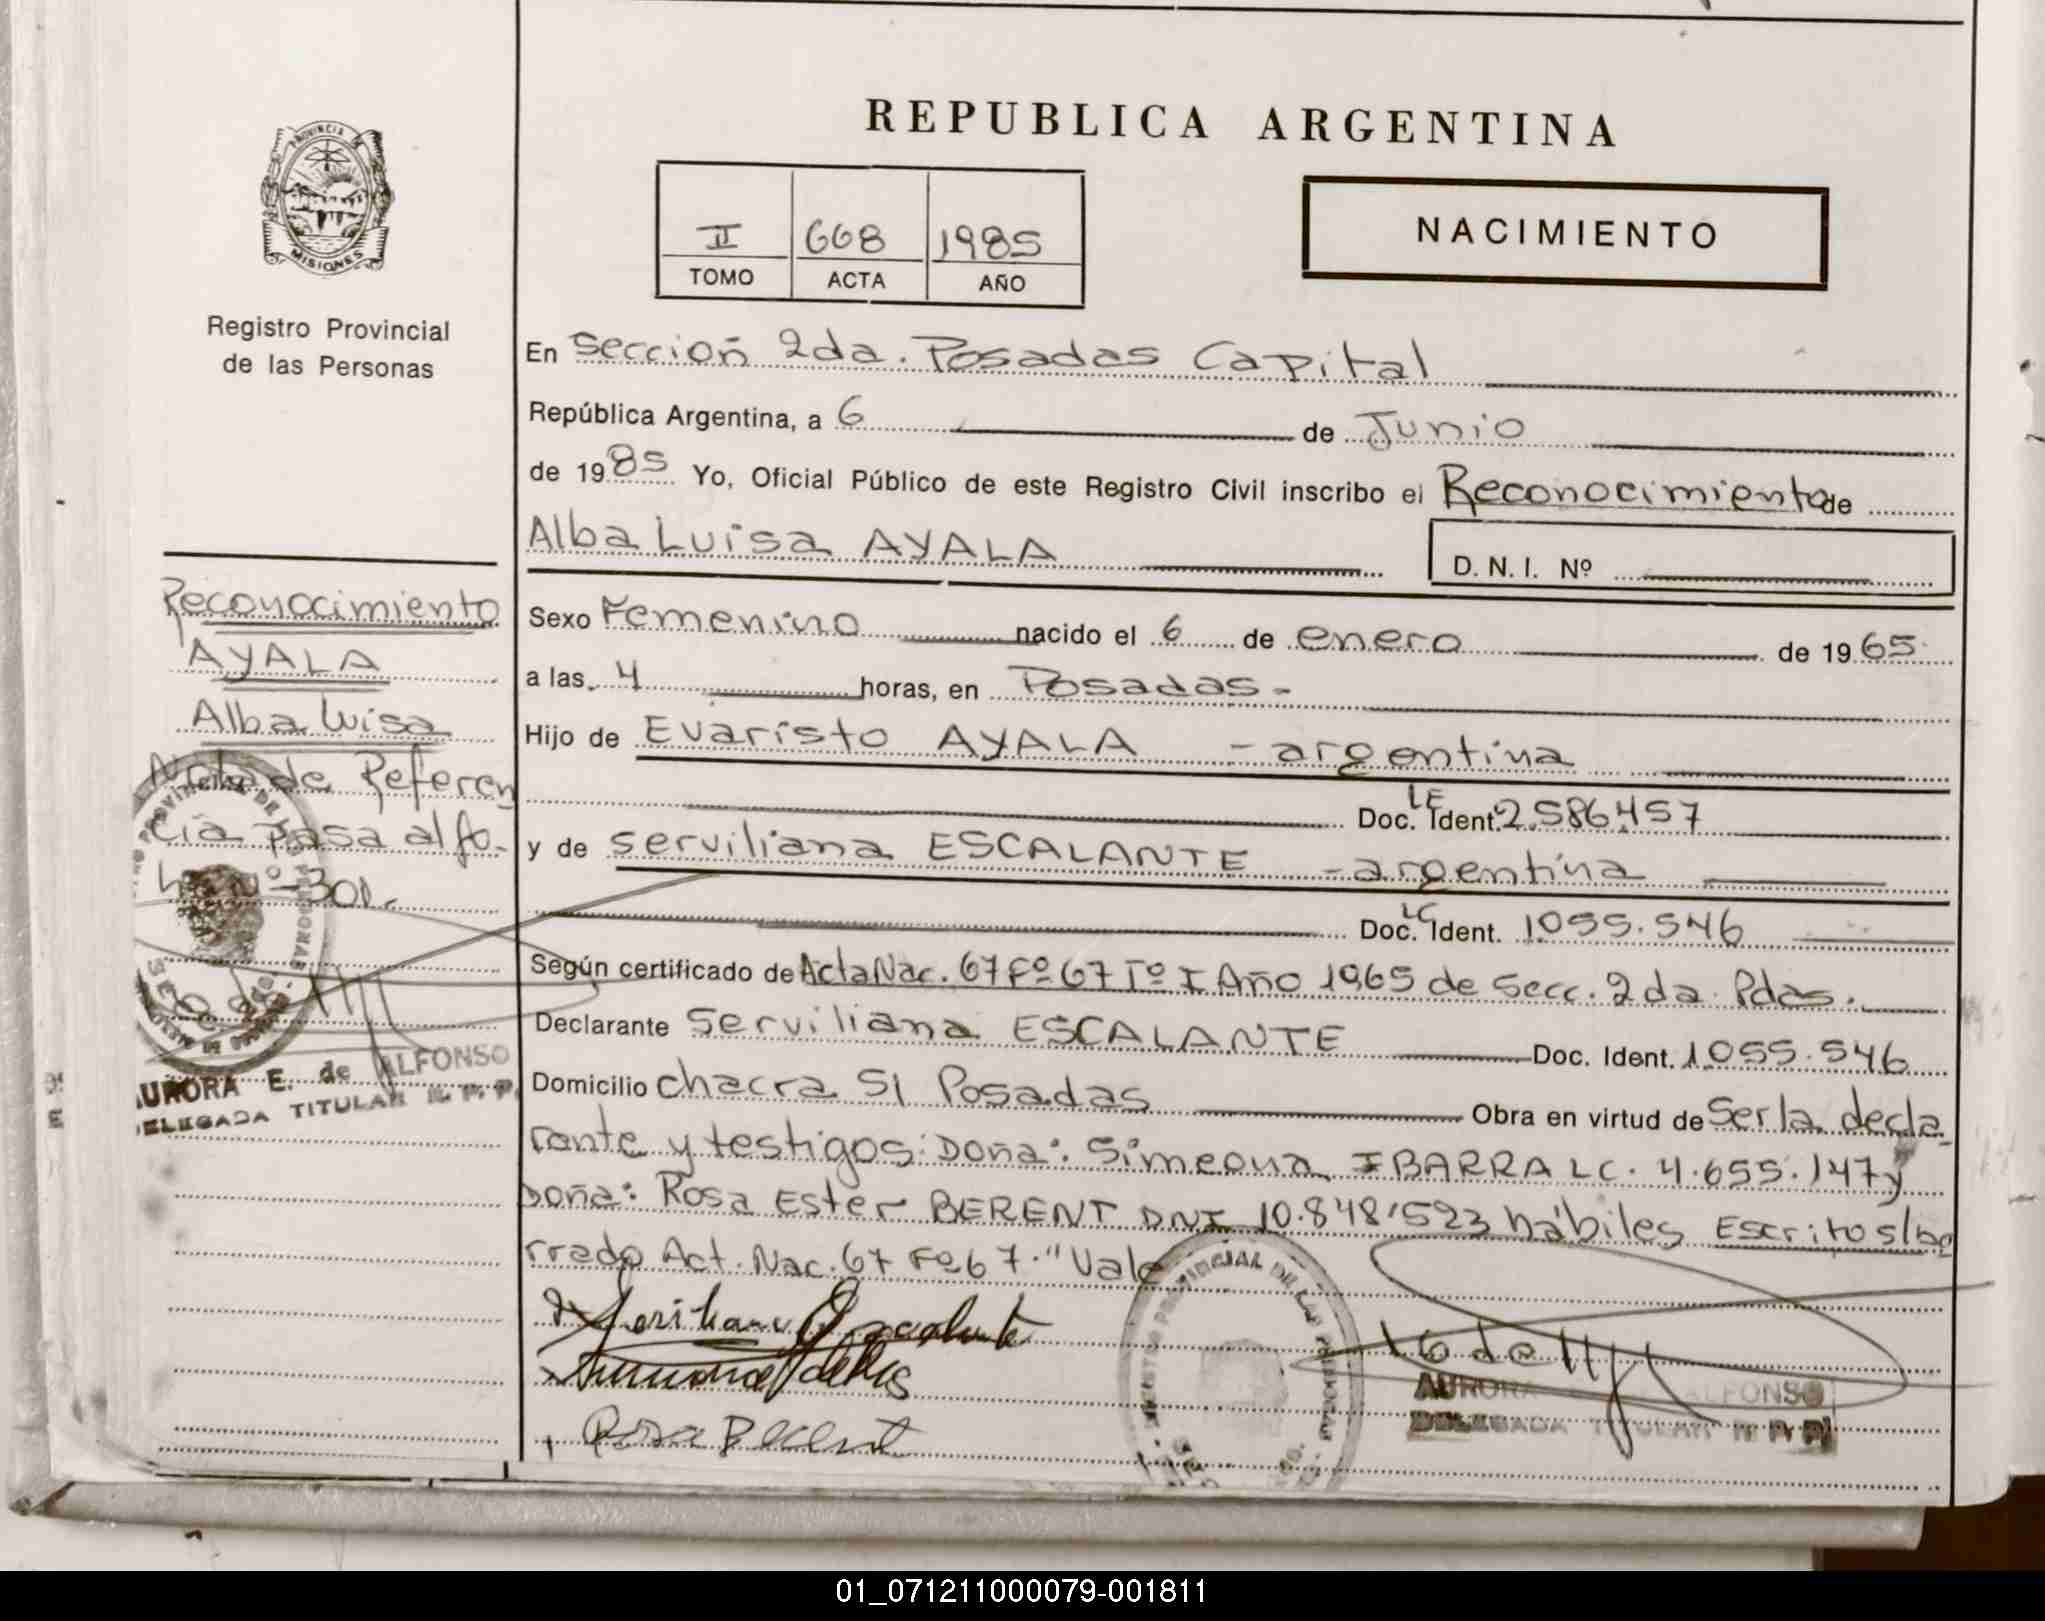 REPUBLICA ARGENTINA
PROVINCIA DE
MISIONES
Registro Provincial
de las Personas
II 668 1985
TOMO ACTA AÑO
NACIMIENTO
En Sección 2da. Posadas Capital
República Argentina, a 6 de Junio
de 1985 Yo, Oficial Público de este Registro Civil inscribo el Reconocimiento de
Alba Luisa AYALA D. N. I. Nº
Sexo Femenino nacido el 6 de enero de 1965
a las 4 horas, en Posadas.-
Hijo de Evaristo AYALA - argentina
Doc. Ident. LE 2.586.457
y de Serviliana ESCALANTE - argentina
Doc. Ident. LC 1.055.546
Según certificado de Acta Nac. 67 Fº 67 Tº I Año 1965 de Secc. 2da. Pdas.
Declarante Serviliana ESCALANTE Doc. Ident. 1.055.546
Domicilio Chacra 51 Posadas Obra en virtud de Ser la decla
rante y testigos: Doña: Simeona IBARRA LC. 4.655.147 y
Doña: Rosa Ester BERENT DNI 10.848.523 hábiles Escrito s/bo
rrado Act. Nac. 67 Fº 67. "Vale
Rosa Berent
AURORA ALFONSO
DELEGADA TITULAR R. P. P.
Reconocimiento
AYALA
Alba Luisa
Nota de Referen
cia pasa al fo-
lio Nº 301.
AURORA E. de ALFONSO
DELEGADA TITULAR R. P. P.
01_071211000079-001811